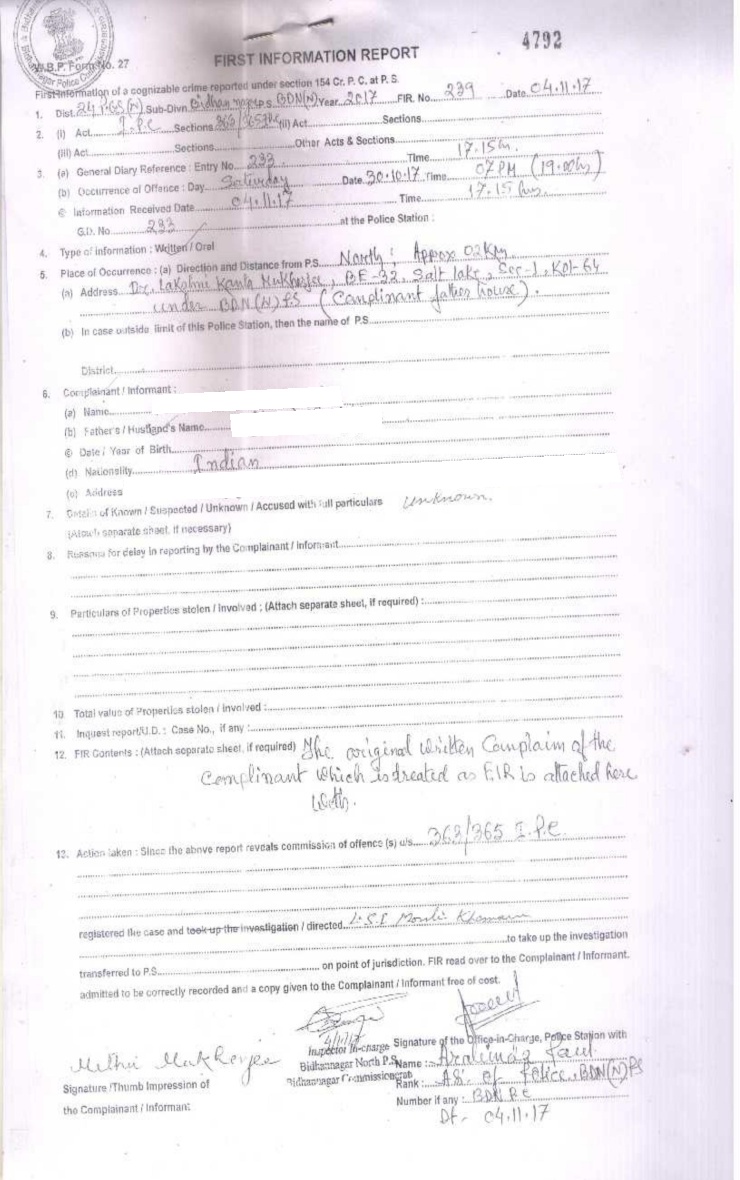 4792
W.B.P. Form No. 27
FIRST INFORMATION REPORT
First Information of a cognizable crime reported under section 154 Cr. P. C. at P. S.
1. Dist. 24 PGS (N) Sub-Divn. Bidhannagar P.S. BDN(N) Year 2017 FIR. No. 239 Date 04.11.17
2. (i) Act I.P.C Sections 363/365 (ii) Act Sections
(iii) Act Sections Other Acts & Sections
3. (a) General Diary Reference : Entry No. 233 Time 17.15 hrs
(b) Occurrence of Offence : Day Saturday Date 30.10.17 Time 07 PM (19.00 hrs)
© Information Received Date 04.11.17 Time 17.15 hrs
G.D. No 233 at the Police Station :
4. Type of information : Written / Oral
5. Place of Occurrence : (a) Direction and Distance from P.S. North ; Approx 02 KM
(a) Address Dr. Lakshmi Kanta Mukherjee, BE-32, Salt lake, Sec-1, Kol-64
under BDN(N) PS (Complinant father house).
(b) In case outside limit of this Police Station, then the name of P.S
District
6. Complainant / Informant :
(a) Name
(b) Father's / Husband's Name
© Date / Year of Birth
(d) Nationality Indian
(e) Address
7. Details of Known / Suspected / Unknown / Accused with full particulars Unknown.
(Attach separate sheet, if necessary)
8. Reasons for delay in reporting by the Complainant / Informant
9. Particulars of Properties stolen / Involved : (Attach separate sheet, if required) :
10. Total value of Properties stolen / Involved :
11. Inquest report/U.D. : Case No., if any :
12. FIR Contents : (Attach separate sheet, if required) The original written Complaim of the
Complinant which is treated as FIR is attached here
with.
13. Action taken : Since the above report reveals commission of offence (s) u/s 363/365 I.P.C.
registered the case and took up the investigation / directed L.S.I
to take up the investigation
transferred to P.S. on point of jurisdiction. FIR read over to the Complainant / Informant.
admitted to be correctly recorded and a copy given to the Complainant / Informant free of cost.
4/11/17
Inspector In-charge
Bidhannagar North P.S.
Bidhannagar Commissionerate
Signature of the Office-in-Charge, Police Station with
Name :
Rank : ASI of Police, BDN(N) PS
Number if any : BDN PC
Dt- 04.11.17
Mithu Mukherjee
Signature /Thumb Impression of
the Complainant / Informant